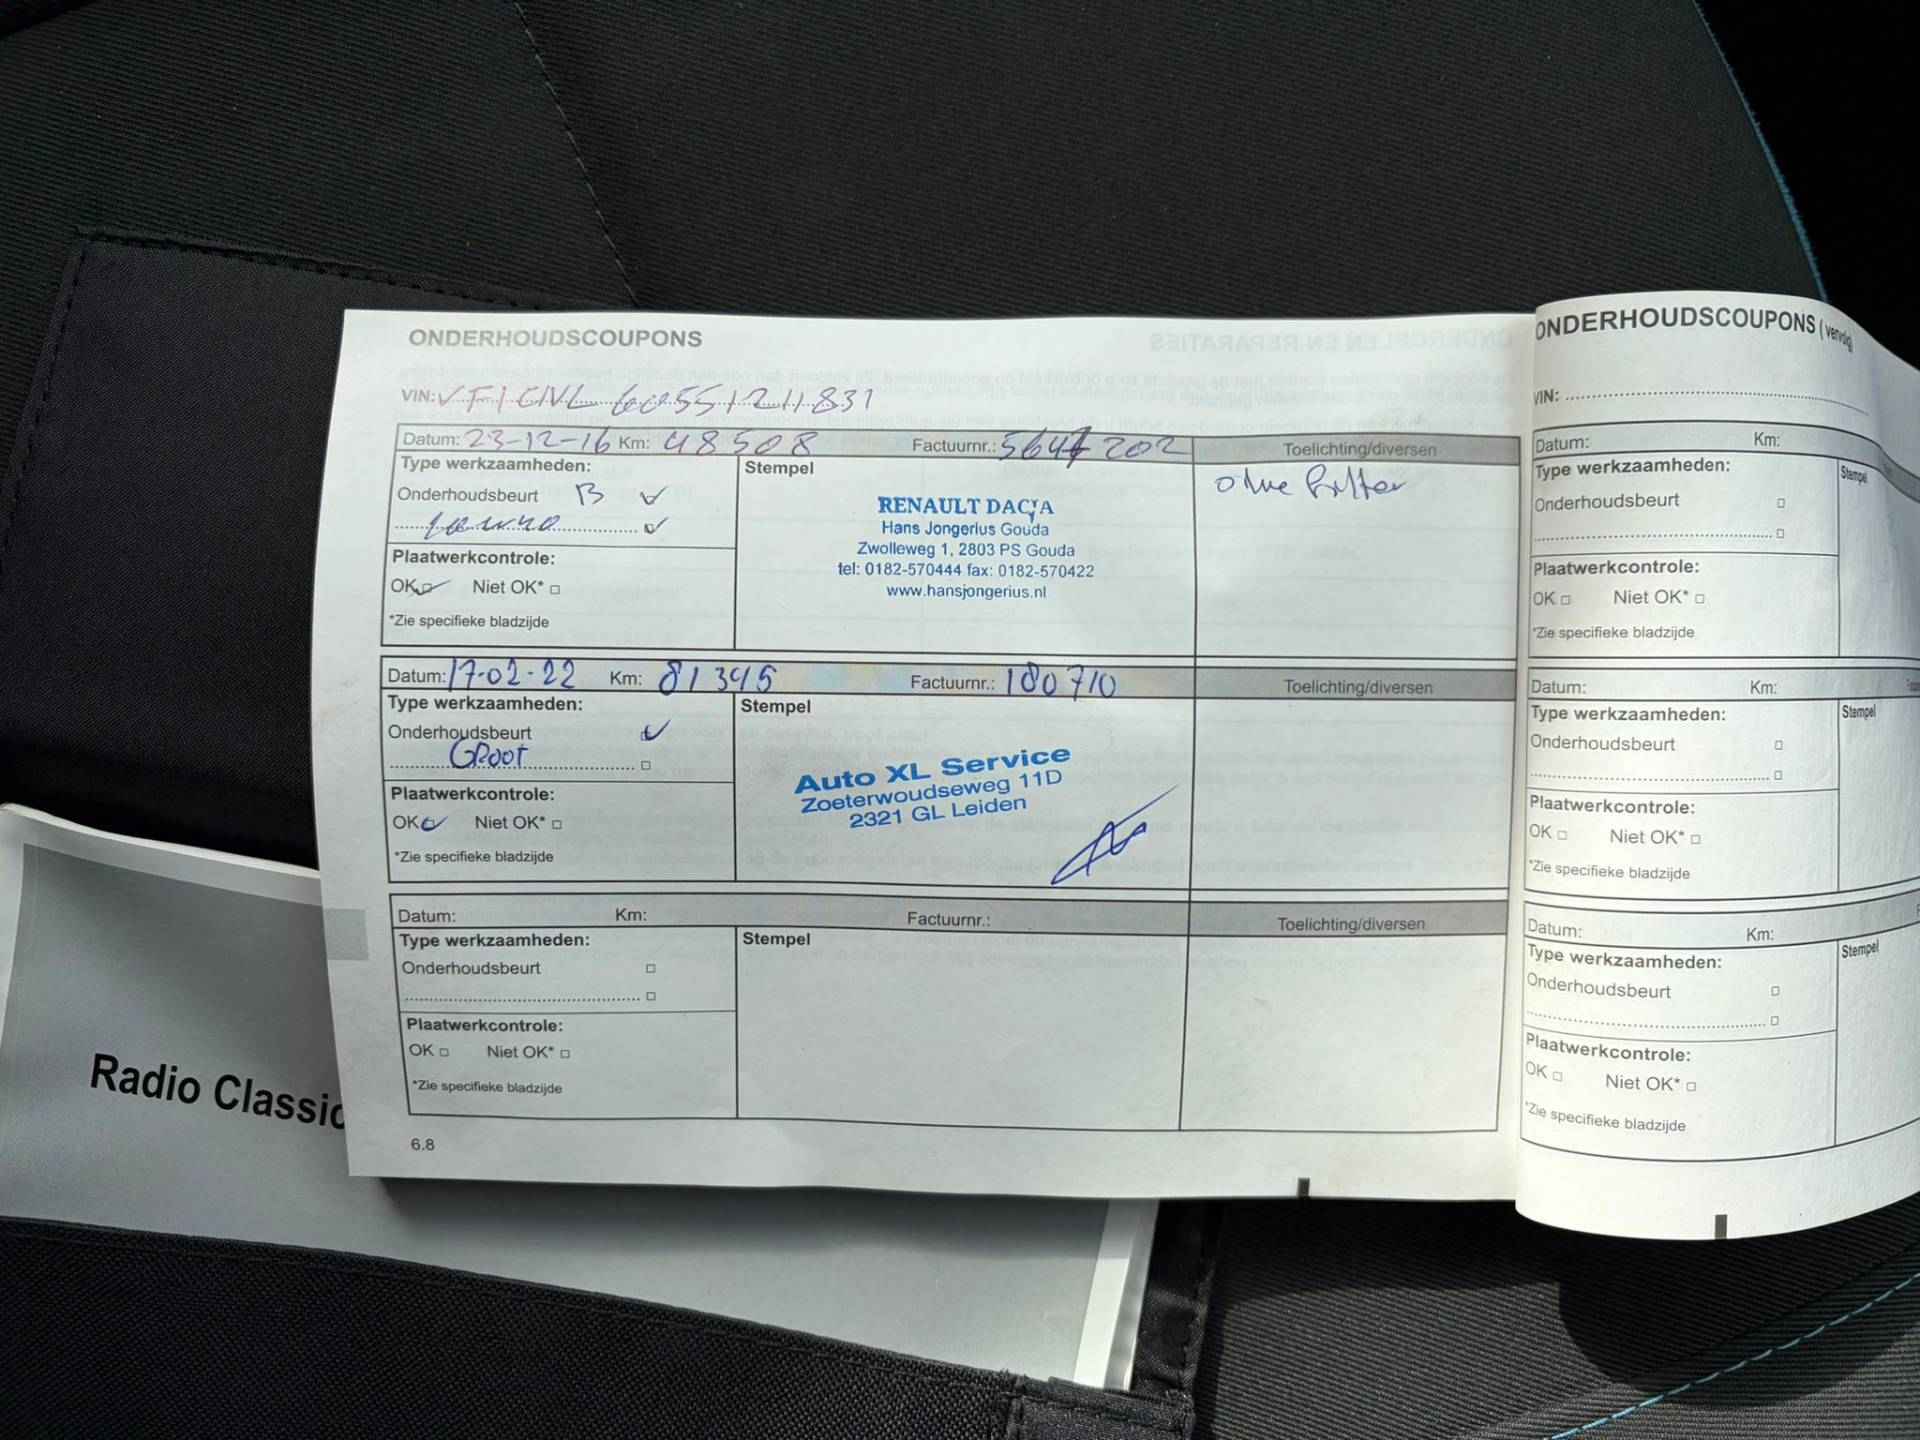 ONDERHOUDSCOUPONS
VIN: VF1CNL6055121 1831
Datum: 23-12-16 Km: 48508 Factuurnr.: 202 Toelichting/diversen
Type werkzaamheden:
Stempel
Onderhoudsbeurt B
Plaatwerkcontrole:
OK Niet OK*
*Zie specifieke bladzijde
RENAULT DACIA
Hans Jongerius Gouda
Zwolleweg 1, 2803 PS Gouda
tel: 0182-570444 fax: 0182-570422
www.hansjongerius.nl
Datum: 17-02-22 Km: 81345 Factuurnr.: 180710 Toelichting/diversen
Type werkzaamheden:
Stempel
Onderhoudsbeurt
GROOT
Plaatwerkcontrole:
OK Niet OK*
*Zie specifieke bladzijde
Auto XL Service
Zoeterwoudseweg 11D
2321 GL Leiden
Datum: Km: Factuurnr.: Toelichting/diversen
Type werkzaamheden:
Stempel
Onderhoudsbeurt
Plaatwerkcontrole:
OK Niet OK*
*Zie specifieke bladzijde
6.8
ONDERHOUDSCOUPONS (vervolg)
VIN:
Datum: Km:
Type werkzaamheden:
Stempel
Onderhoudsbeurt
Plaatwerkcontrole:
OK Niet OK*
*Zie specifieke bladzijde
Datum: Km:
Type werkzaamheden:
Stempel
Onderhoudsbeurt
Plaatwerkcontrole:
OK Niet OK*
*Zie specifieke bladzijde
Datum: Km:
Type werkzaamheden:
Stempel
Onderhoudsbeurt
Plaatwerkcontrole:
OK Niet OK*
*Zie specifieke bladzijde
Radio Classic